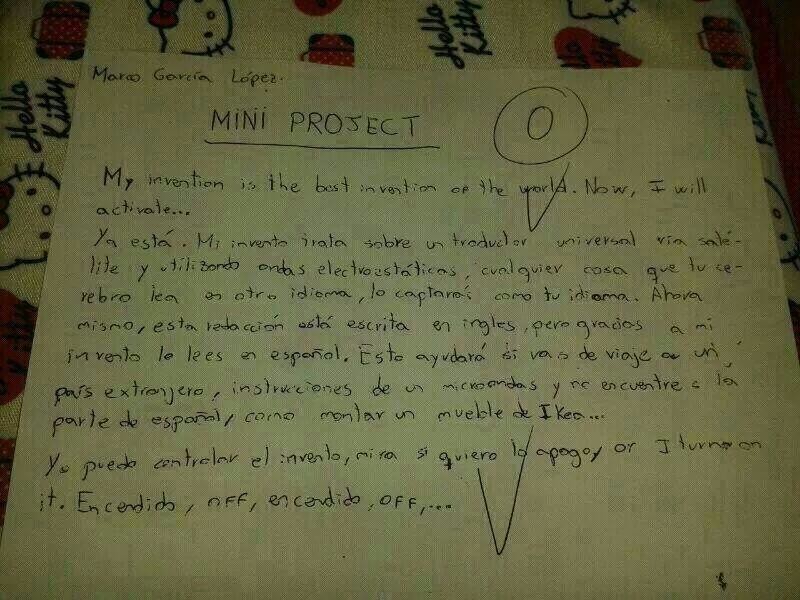 Hello Kitty
Hello Kitty
Hello Kitty
Marco García López.
MINI PROJECT
0
My invention is the best invention of the world. Now, I will
activate...
Ya está. Mi invento trata sobre un traductor universal vía saté-
lite y utilizando ondas electroestáticas, cualquier cosa que tu ce-
rebro lea en otro idioma, lo captarás como tu idioma. Ahora
mismo, esta redacción está escrita en ingles, pero gracias a mi
invento lo lees en español. Esto ayudará si vas de viaje a un
país extranjero, instrucciones de un microondas y no encuentres la
parte de español, como montar un mueble de IKea...
Yo puedo controlar el invento, mira si quiero lo apago, or I turn on
it. Encendido, OFF, encendido, OFF,...